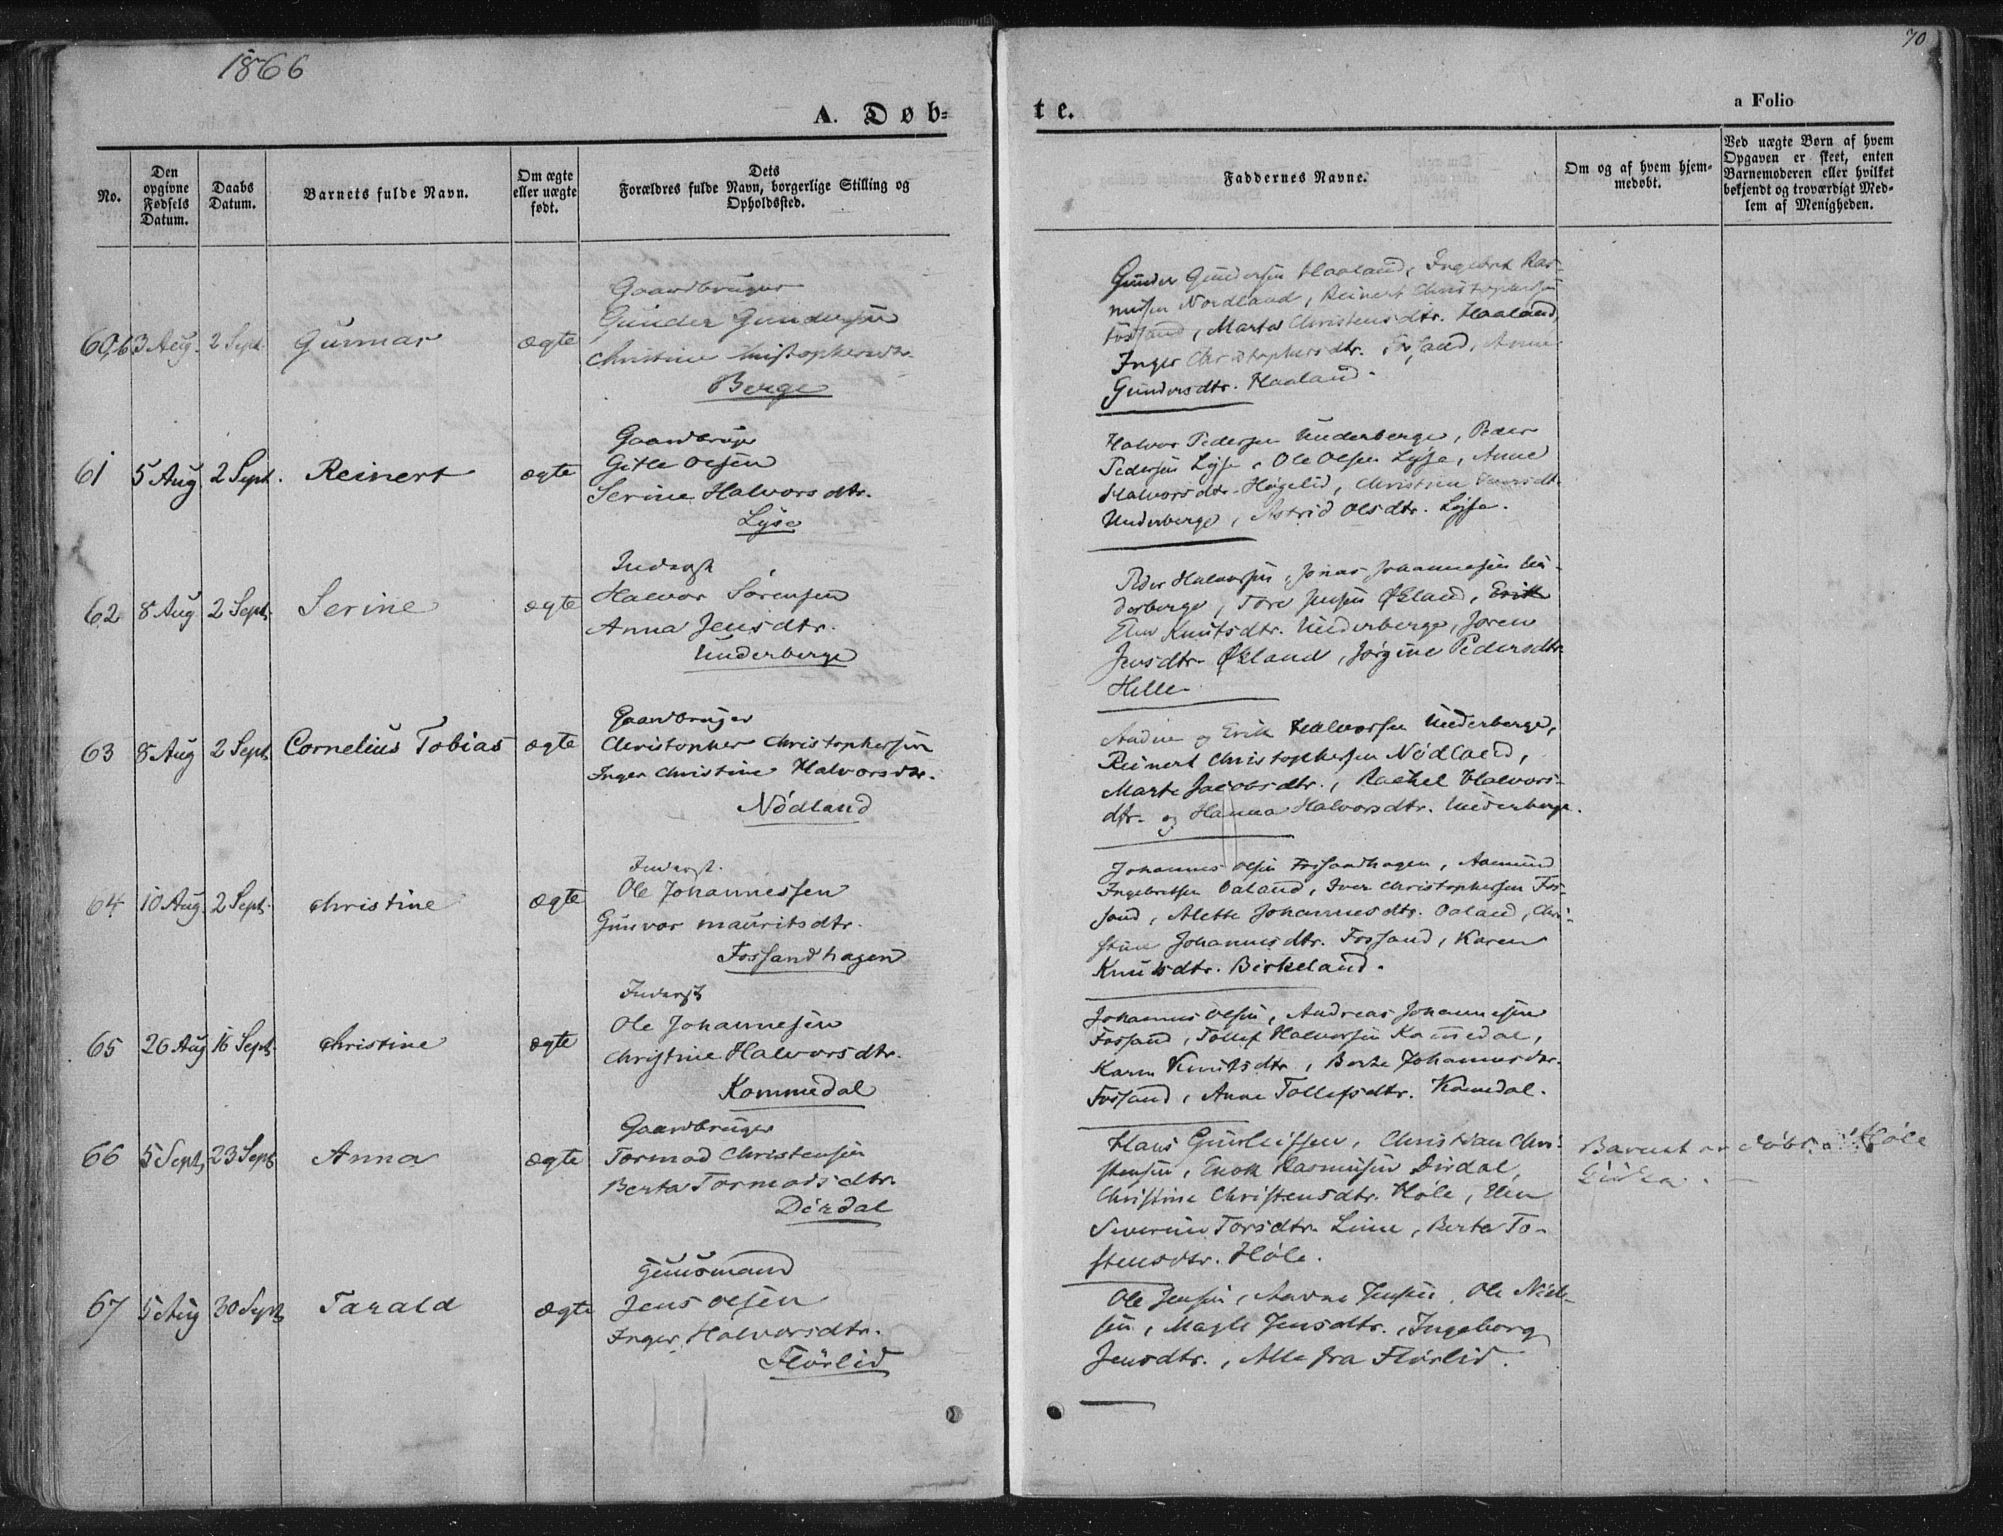 1866
70
A. Døb-
te.
a Folio
No.
Den opgivne Fødsels Datum.
Daabs Datum.
Barnets fulde Navn.
Om ægte eller uægte født.
Dets Forældres fulde Navn, borgerlige Stilling og Opholdssted.
Faddernes Navne.
Om og af hvem hjemmedøbt.
Ved uægte Børn af hvem Opgaven er skeet, enten Barnemoderen eller hvilket bekjendt og troværdigt Medlem af Menigheden.
3 Aug. 2 Sept. Gunnar ægte
Gaardbruger
Gunder Gundersen
Christine Christophersdtr.
Berge
Gunder Gundersen Haaland, Ingebret Ras-
musen Nordland, Reinert Christophersen
Fossand, Marta Christensdtr. Haaland,
Inger Christophersdtr. Fossand, Anne
Gundersdtr. Haaland.
61 5 Aug 2 Sept. Reinert ægte
Gaardbruger
Gitle Olsen
Serine Halvorsdtr.
Lyse
Halvor Pedersen Underberge, Peder
Pedersen Lyse, Ole Olsen Lyse, Anne
Halvorsdtr. Høgelid, Christine
Underberge, Astrid Olsdtr. Lyse.
62 8 Aug 2 Sept. Serine ægte
Inderst
Halvor Sørensen
Anna Jensdtr.
Underberge
Peder Halvorsen, Jonas Johannesen Un-
derberge, Tore Jensen Økland,
Elen Knutsdtr. Underberge, Joren
Jensdtr. Økland, Jørgine Pedersdtr.
Helle.
63 8 Aug 2 Sept. Cornelius Tobias ægte
Gaardbruger
Christopher Christophersen
Inger Christine Halvorsdtr.
Nødland
og Erik Halvorsen Underberge,
Reinert Christophersen Nødland,
Marte Jacobsdtr., Rachel Halvors-
dtr. og Hanna Halvorsdtr. Underberge.
64 10 Aug. 2 Sept. Christine ægte
Inderst.
Ole Johannessen
Gunvor Mauritsdtr.
Fossandhagen
Johannes Olsen Fossandhagen, Aamund
Ingebretsen Oaland, Iver Christophersen Fos-
sand, Alette Johannesdtr. Oaland, Chri-
stine Johannesdtr. Fossand, Karen
Knutsdtr. Birkeland.
65 26 Aug 16 Sept. Christine ægte
Inderst
Ole Johannesen
Christine Halvorsdtr.
Kommedal
Johannes Olsen, Andreas Johannesen
Fossand, Tollef Halvorsen Kommedal,
Karen Knutsdtr, Berte Johannesdtr.
Fossand, Anne Tollefsdtr. Komedal.
66 5 Sept. 23 Sept. Anna ægte
Gaardbruger
Tormod Christensen
Berta Tormodsdtr.
Dirdal
Hans Gunleifsen, Christian Chri-
stensen, Enok Rasmusen Dirdal,
Christine Christensdtr. Høle, Elen
Severine Torsdtr. Lime, Berta To-
stensdtr. Høle.
Barnet er døbt i Høle
Kirke.
67 5 Aug 30 Sept. Tarald ægte
Huusmand
Jens Olsen
Inger Halvorsdtr.
Flørlid
Ole Jensen, Jensen, Ole Niel-
sen, Magle Jensdtr., Ingeborg
Jensdtr., Alle fra Flørlid.